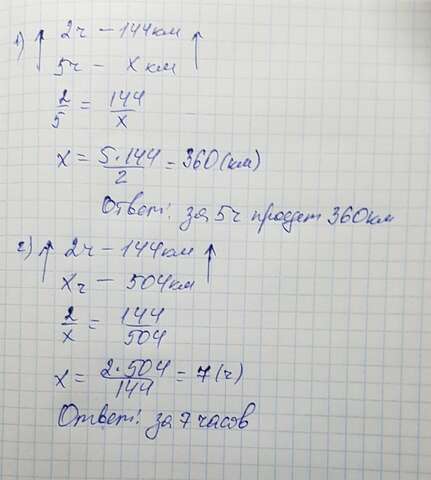 1) ↑ 2ч – 144км ↑
5ч – х км
2/5 = 144/х
х = 5·144/2 = 360(км)
Ответ: за 5ч проедет 360км
2) ↑ 2ч – 144км ↑
Хч – 504км
2/х = 144/504
х = 2·504/144 = 7(ч)
Ответ: за 7 часов